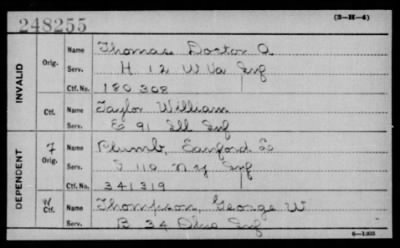 248255
(3-H-4)
INVALID
Orig.
Name Thomas Doctor A
Serv. H 12 W Va Inf
Ctf. No. 180308
Ctf.
Name Taylor William
Serv. E 91 Ill Inf
DEPENDENT
F
Orig.
Name Plumb, Sanford
Serv. 110 N Y Inf
Ctf. No. 341319
W
Ctf.
Name Thompson, George W
Serv. B 34 Ohio Inf